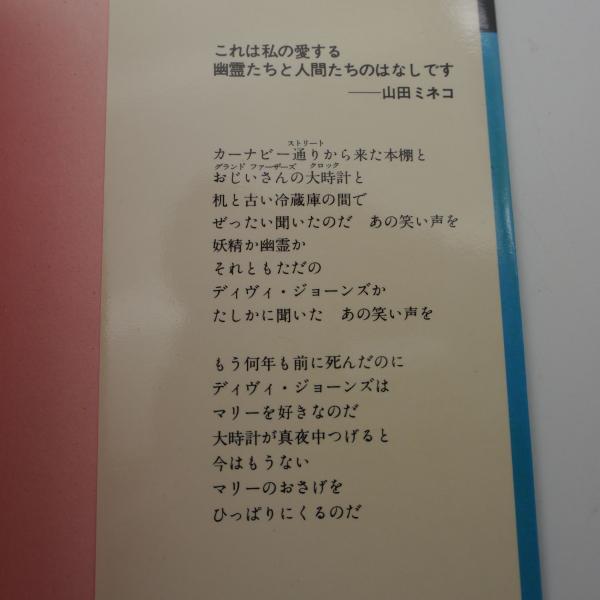 これは私の愛する
幽霊たちと人間たちのはなしです
──山田ミネコ
ストリート
カーナビー通りから来た本棚と
グランド ファーザーズ クロック
おじいさんの大時計と
机と古い冷蔵庫の間で
ぜったい聞いたのだ　あの笑い声を
妖精か幽霊か
それともただの
ディヴィ・ジョーンズか
たしかに聞いた　あの笑い声を
もう何年も前に死んだのに
ディヴィ・ジョーンズは
マリーを好きなのだ
大時計が真夜中つげると
今はもうない
マリーのおさげを
ひっぱりにくるのだ